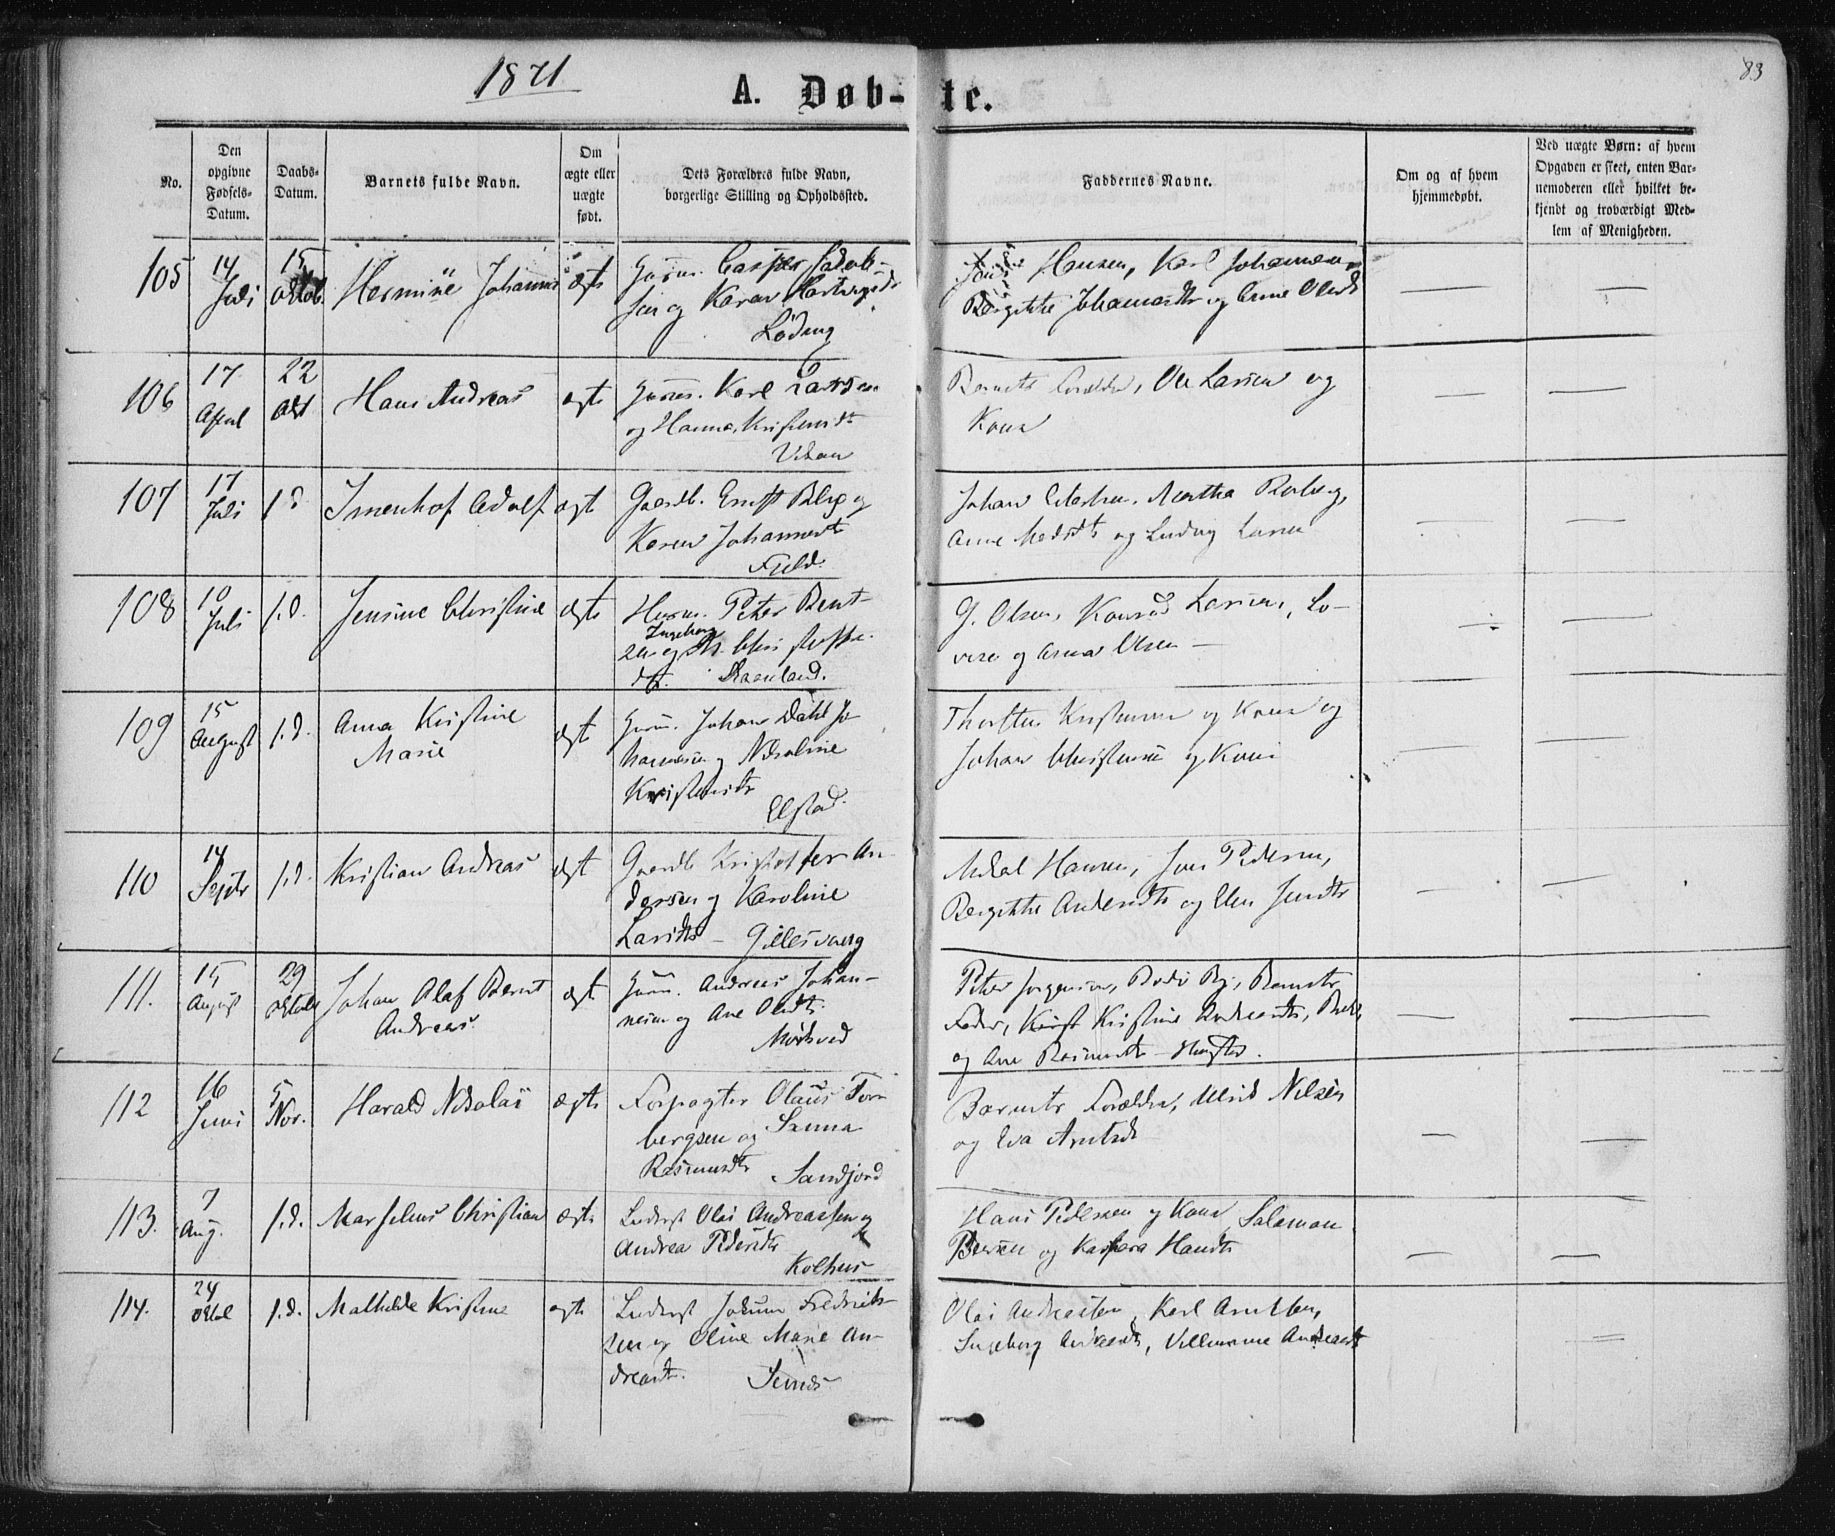 1871
A. Døb-te.
83
No.
Den opgivne Fødsels-Datum.
Daabs-Datum.
Barnets fulde Navn.
Om ægte eller uægte født.
Dets Forældres fulde Navn, borgerlige Stilling og Opholdssted.
Faddernes Navne.
Om og af hvem hjemmedøbt.
Ved uægte Børn: af hvem Opgaven er skeet, enten Barnemoderen eller hvilket bekjendt og troværdigt Medlem af Menigheden.
105 14 Juli 15 Oktob. Hermine Johanna ægte Huusm. Casper Jakob-
sen og Karen Hartvigsdt
Løding
Hansen, Karl Johannesen
Bergitte Johannesdt og Anne Olsdt
106 17 April 22 Okt Hans Andreas ægte Huusm. Karl Larsen
og Hanna Kristensdt
Vikan
Barnets Forældre, Ole Larsen og
Kona
107 17 Juli s.d. Imenhof Adolf ægt Gaardb. Ernst Blix og
Karen Johannesdt
Fjeld.
Johan
Anne Madsdt og Ludvig Larsen
108 10 Juli s.d. Jensine Christine ægte Huusm. Peter Bent-
zen og Ingeborg M. Christoffe-
dt. Skaanland.
G. Olsen, Konrad Larsen, Lo-
vise og Anna Olsen
109 15 August s.d. Anna Kristine
Marie
ægt Huusm. Johan Dahl Jo-
hannesen og Nikoline
Kristensdt
Elstad.
Thorsten Kristensen og Kona og
Johan Christensen og Kona
110 14 Septr s.d. Kristian Andreas ægt Gaardb Kristoffer An-
dersen og Karoline
Larsdt - Gillesvaag
Mikal Hansen, Jens Pedersen,
Bergitte Andersdt og Elen Jensdt
111. 15 August 29 Oktob Johan Olaf Bernt
Andreas.
ægt Huusm. Andreas Johan-
nesen og Ane Olsdt.
Mørkved
Peter Jørgensen, Bodø By, Barnets
Fader, Kristine Andreasdt,
og Ane Rasmusdt -
112 16 Juni 5 Nov. Harald Nikolai ægte Forpagter Olaus Torn
bergsen og Sanna
Rasmusdt
Sandjord
Barnets Forældre, Ulrik Nilsen
og Eva Arntsdt
113. 7 Aug. s.d. Marselius Christian ægte Inderst Olai Andreassen og
Andrea Pedersdt
Kolhus
Hans Pedersen og Kona Salamon
og Kaspara Hansdt
114. 24 Oktob s.d. Mathilde Kristine ægte Inderst Jokum Fredrik-
sen og Oline Marie An-
dreasdt.
Olai Andreassen, Karl Arntsen,
Ingeborg Andreasdt, Villmanne Andreasdt